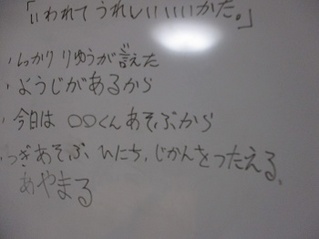 「いわれて うれしいいいかた。」
・しっかり りゆうが言えた
・ようじがあるから
・今日は ○○くんあそぶから
・つぎあそぶ ひにち、じかんをつたえる。
あやまる